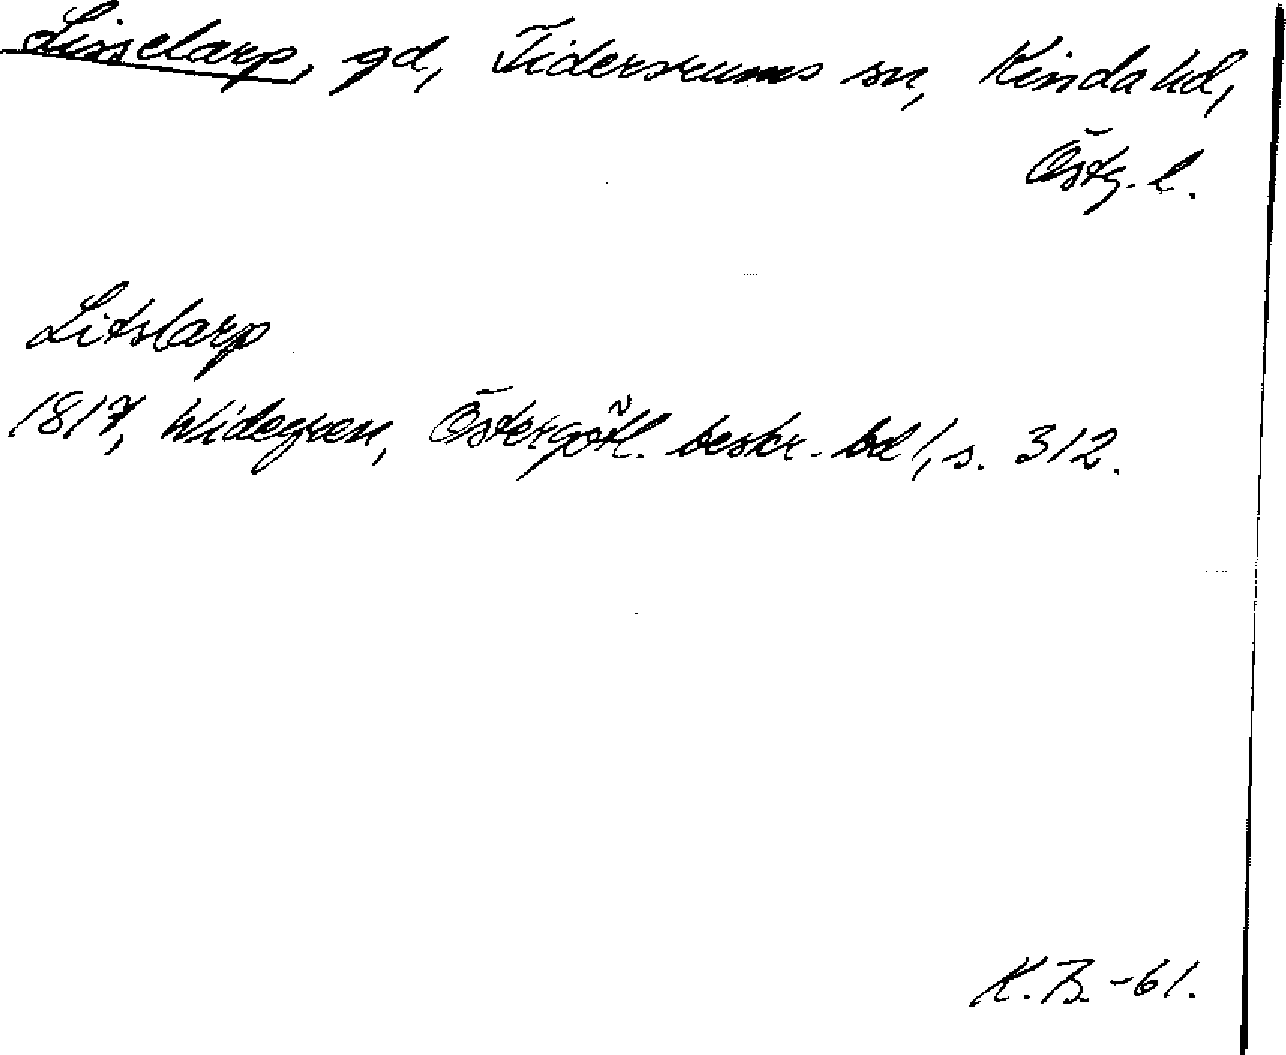 Lisselarp, gd, Tidersrums sn, Kinda hd,
Östg. l.
Litslarp
1817, Widegren, Östergötl. beskr. bd 1, s. 312.
K.B. -61.